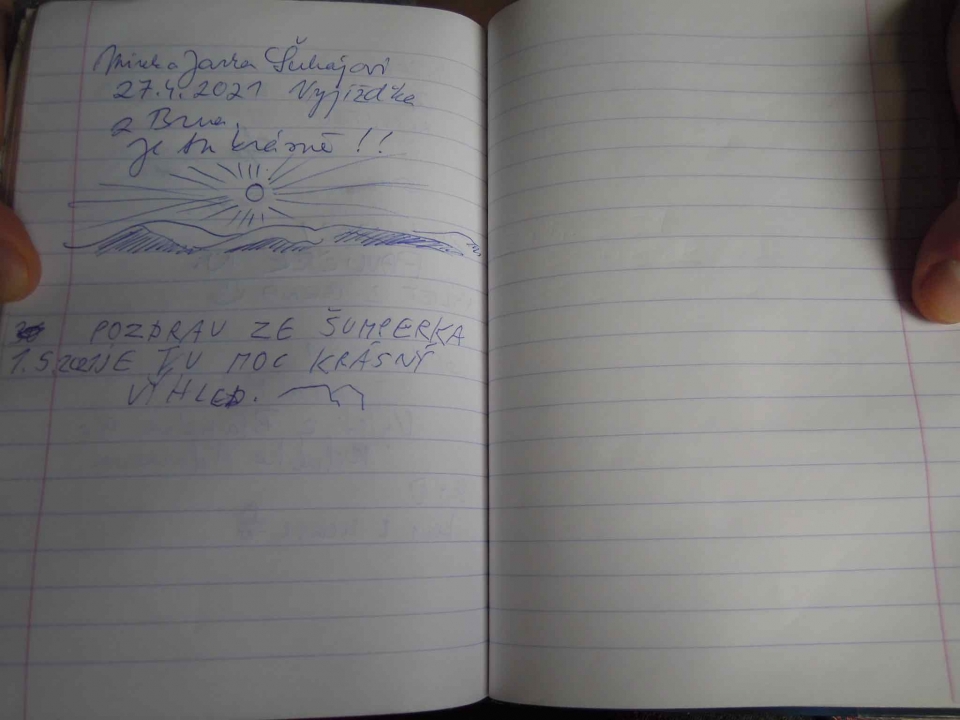 Mirek a Jarka Šuhajovi
27.4.2021 Vyjížďka
z Brna.
je tu krásně !!
POZDRAV ZE ŠUMPERKA
JE TU MOC KRÁSNÝ
VÝHLED.